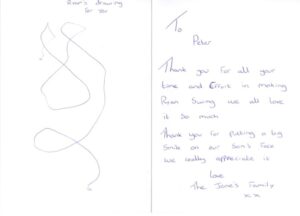 Ryan's drawing
for you
To
Peter
Thank you for all your
time and Effort in making
Ryan Swing we all love
it so much
Thank you for putting a big
Smile on our Son's face
we really appreciate it
Love
The Jones Family
x x